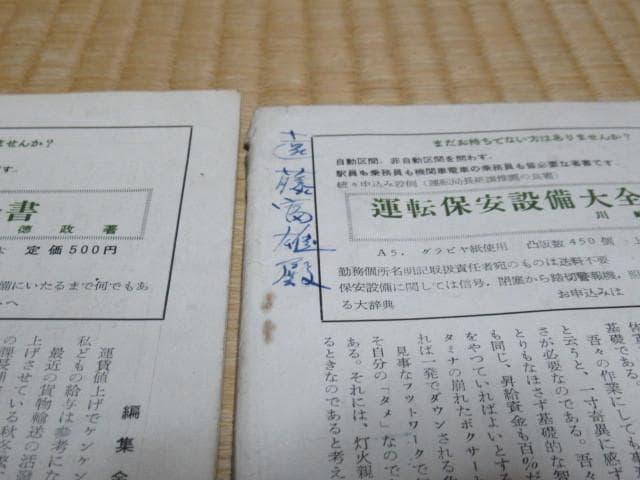 ませんか?
書
徳政著
定価500円
備にいたるまで何でもあ
へ
編集
運賃値上げでケンケン
私どもの給与は参考にな
最近の貨物輸送の活
上げさせている秋冬繁
遠藤富雄殿
まだお持ちでない方はありませんか?
自動区間、非自動区間を問わず、
駅員も乗務員も機関車電車の乗務員も皆必要な名著です。
運転保安設備大全
川
A5, グラビヤ紙使用 凸版数450個
勤務個所名明記取扱責任者宛のものは送料不要
保安設備に関しては信号、閉塞から踏切警報機、
る大辞典
お申込みは
基礎である。
吾々の作業にしても事
と云うと、一寸奇異に感ず
さが必要なのである。吾々
とりもなおさず基礎的な智
も同じ、昇給資金も百%だ
をやつていればよいとする
タミナの崩れたボクサー
れば一発でダウンされる
見事なフットワークで
そ自分の「タメ」なので
ある。それには、灯火親
るときなのであると考え